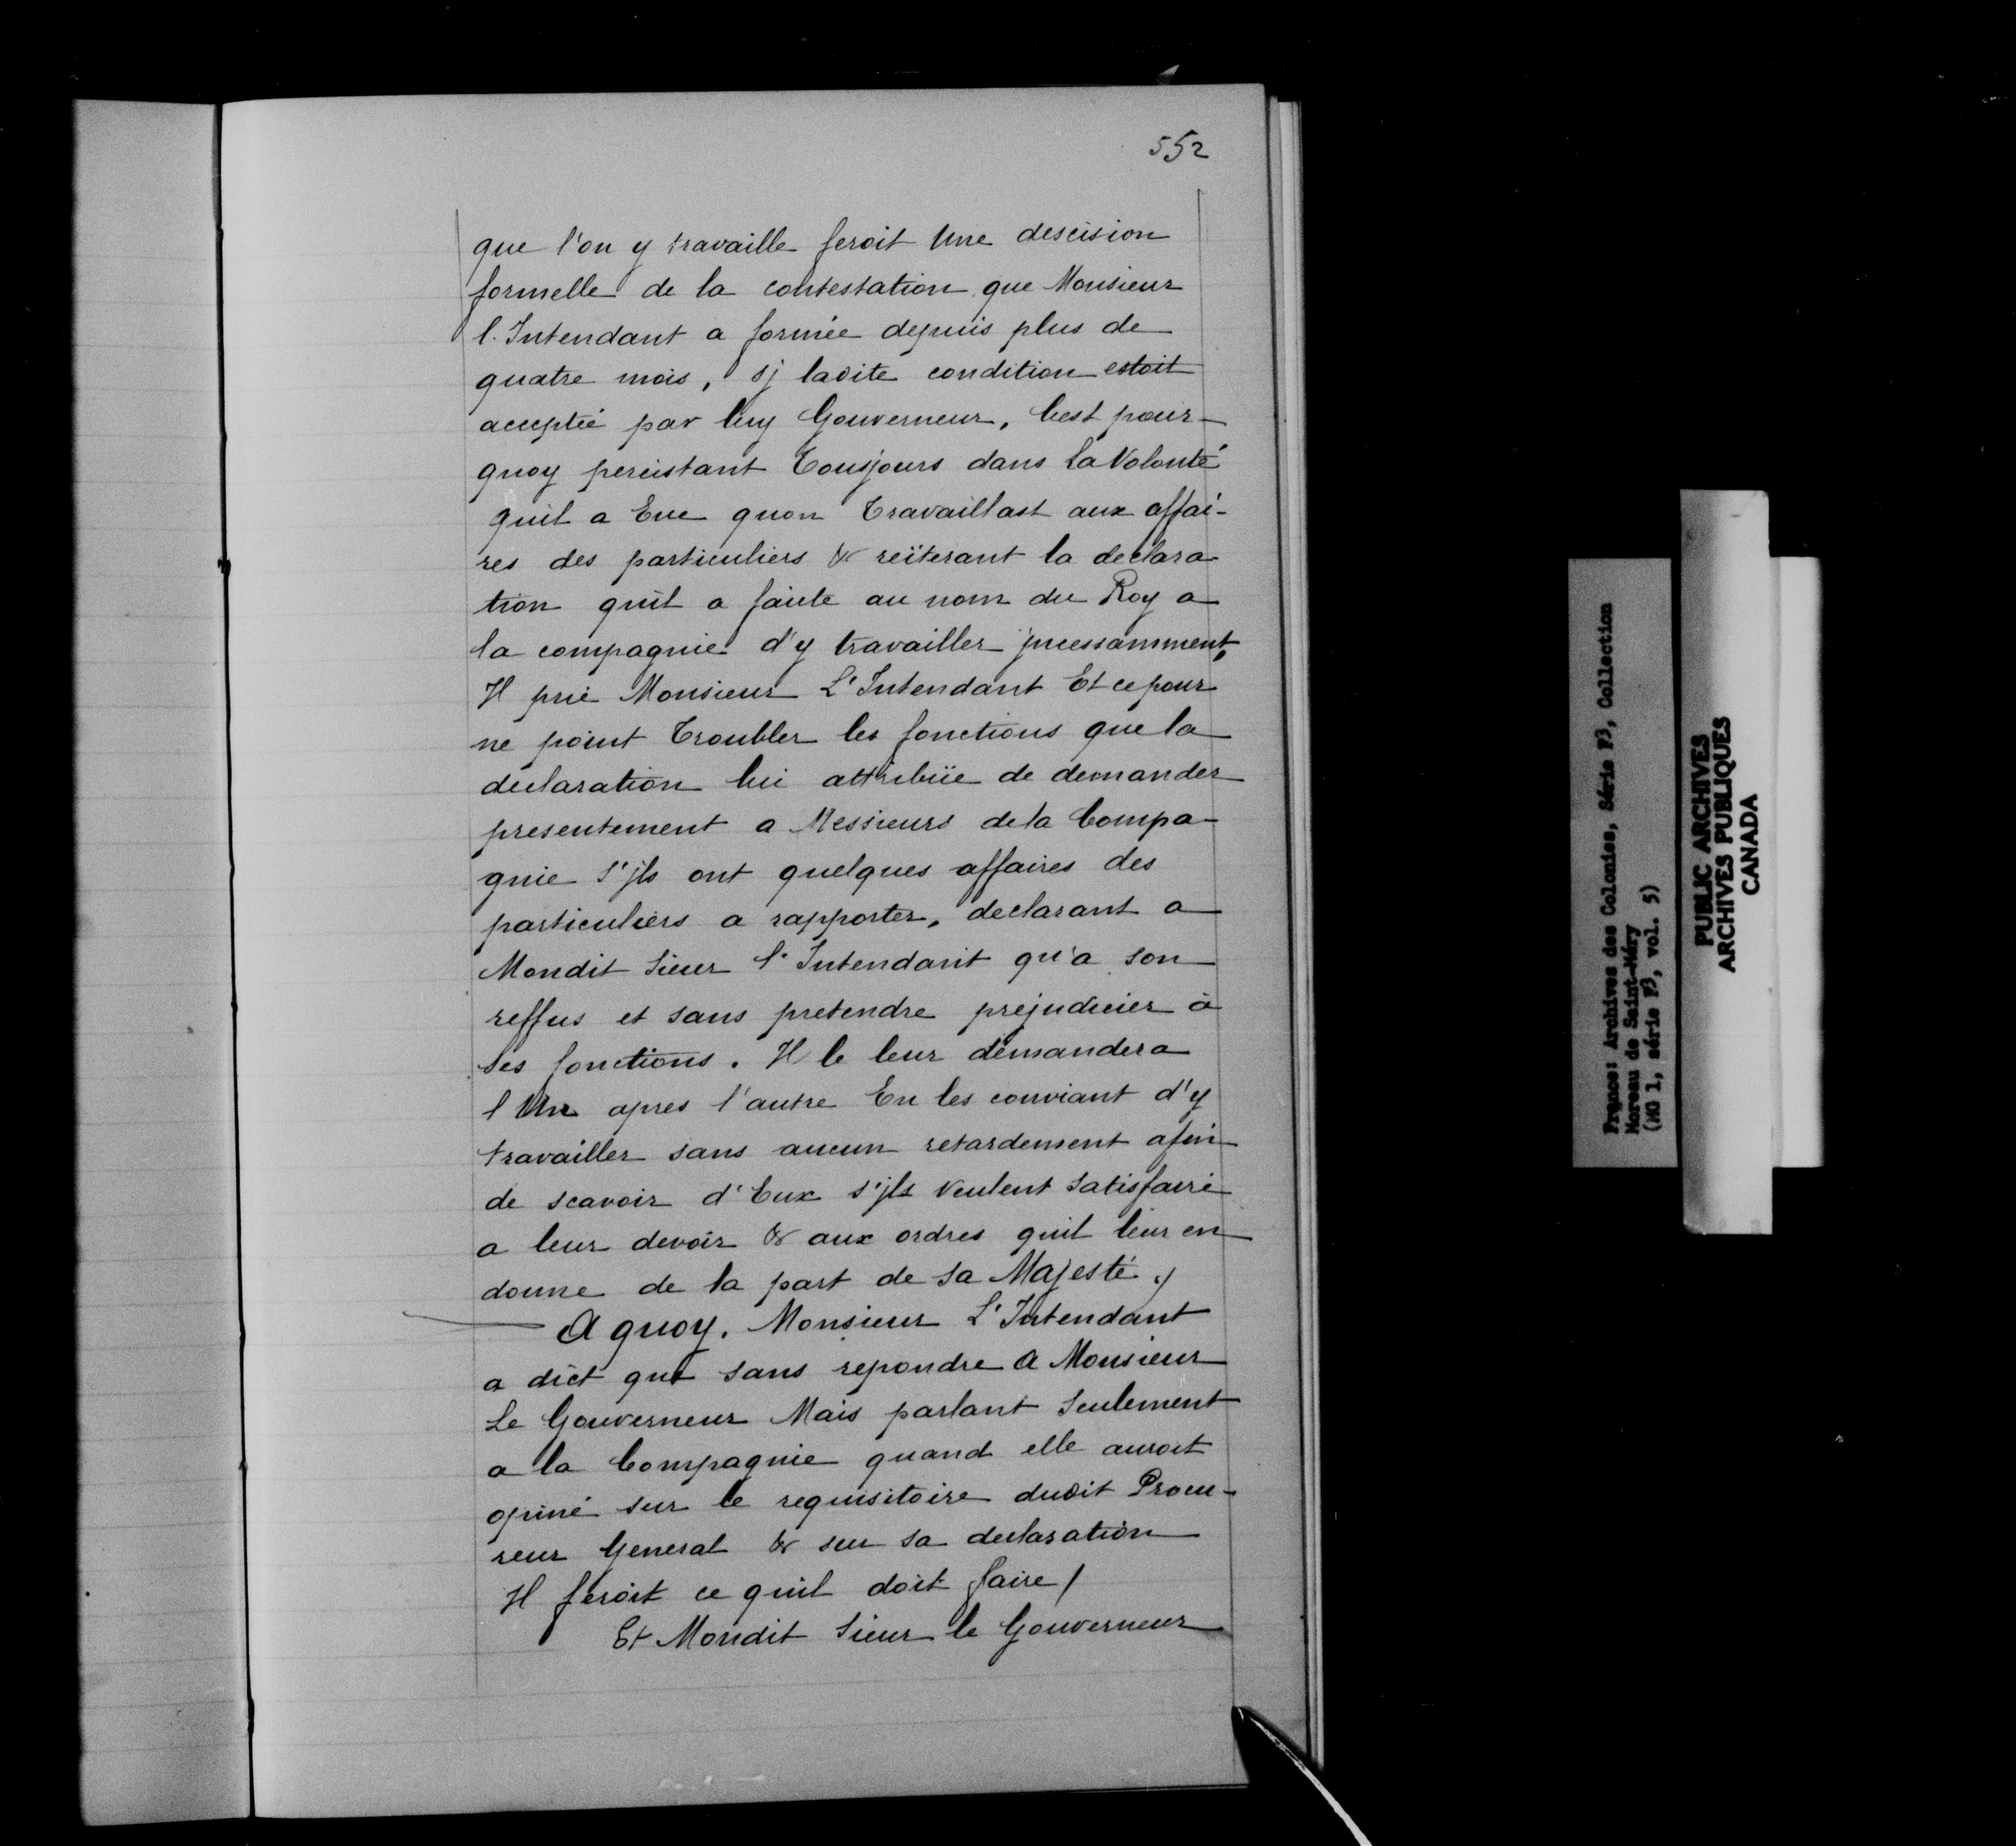 552
que l'on y travaille seroit Une descision
formelle de la contestation que Monsieur
l'Intendant a formée depuis plus de
quatre mois, sj ladite condition estoit
acceptée par luy Gouverneur, C'est pour-
quoy percistant Tousjours dans La Volonté
quil a Eue quon Travaillast aux affai-
res des particuliers & reïterant la declara
tion quil a faite au nom du Roy a
la compagnie d'y travailler jncessamment,
Il prie Monsieur L'Intendant Et ce pour
ne point Troubler les fonctions que la
declaration lui attribüe de demander
presentement a Messieurs de la Compa-
gnie S'jls ont quelques affaires des
particuliers a rapporter, declarant a
Mondit Sieur l'Intendant qu'a son
reffus et sans pretendre prejudicier à
ses fonctions. Il le leur demandera
l'Un apres l'autre En les conviant d'y
travailler sans aucun retardement afin
de scavoir d'Eux s'jls veulent satisfaire
a leur devoir & aux ordres quil leur en
donne de la part de sa Majesté ./
A quoy. Monsieur L'Intendant
a dict que sans repondre A Monsieur
Le Gouverneur Mais parlant seulement
a la Compagnie quand elle auroit
opiné sur le requisitoire dudit Procu-
reur General & sur sa declaration
Il feroit ce quil doit faire /
Et Mondit Sieur le Gouverneur
France: Archives des Colonies, Série F3, Collection
Moreau de Saint-Méry
(MG 1, série F3, vol. 5)
PUBLIC ARCHIVES
ARCHIVES PUBLIQUES
CANADA